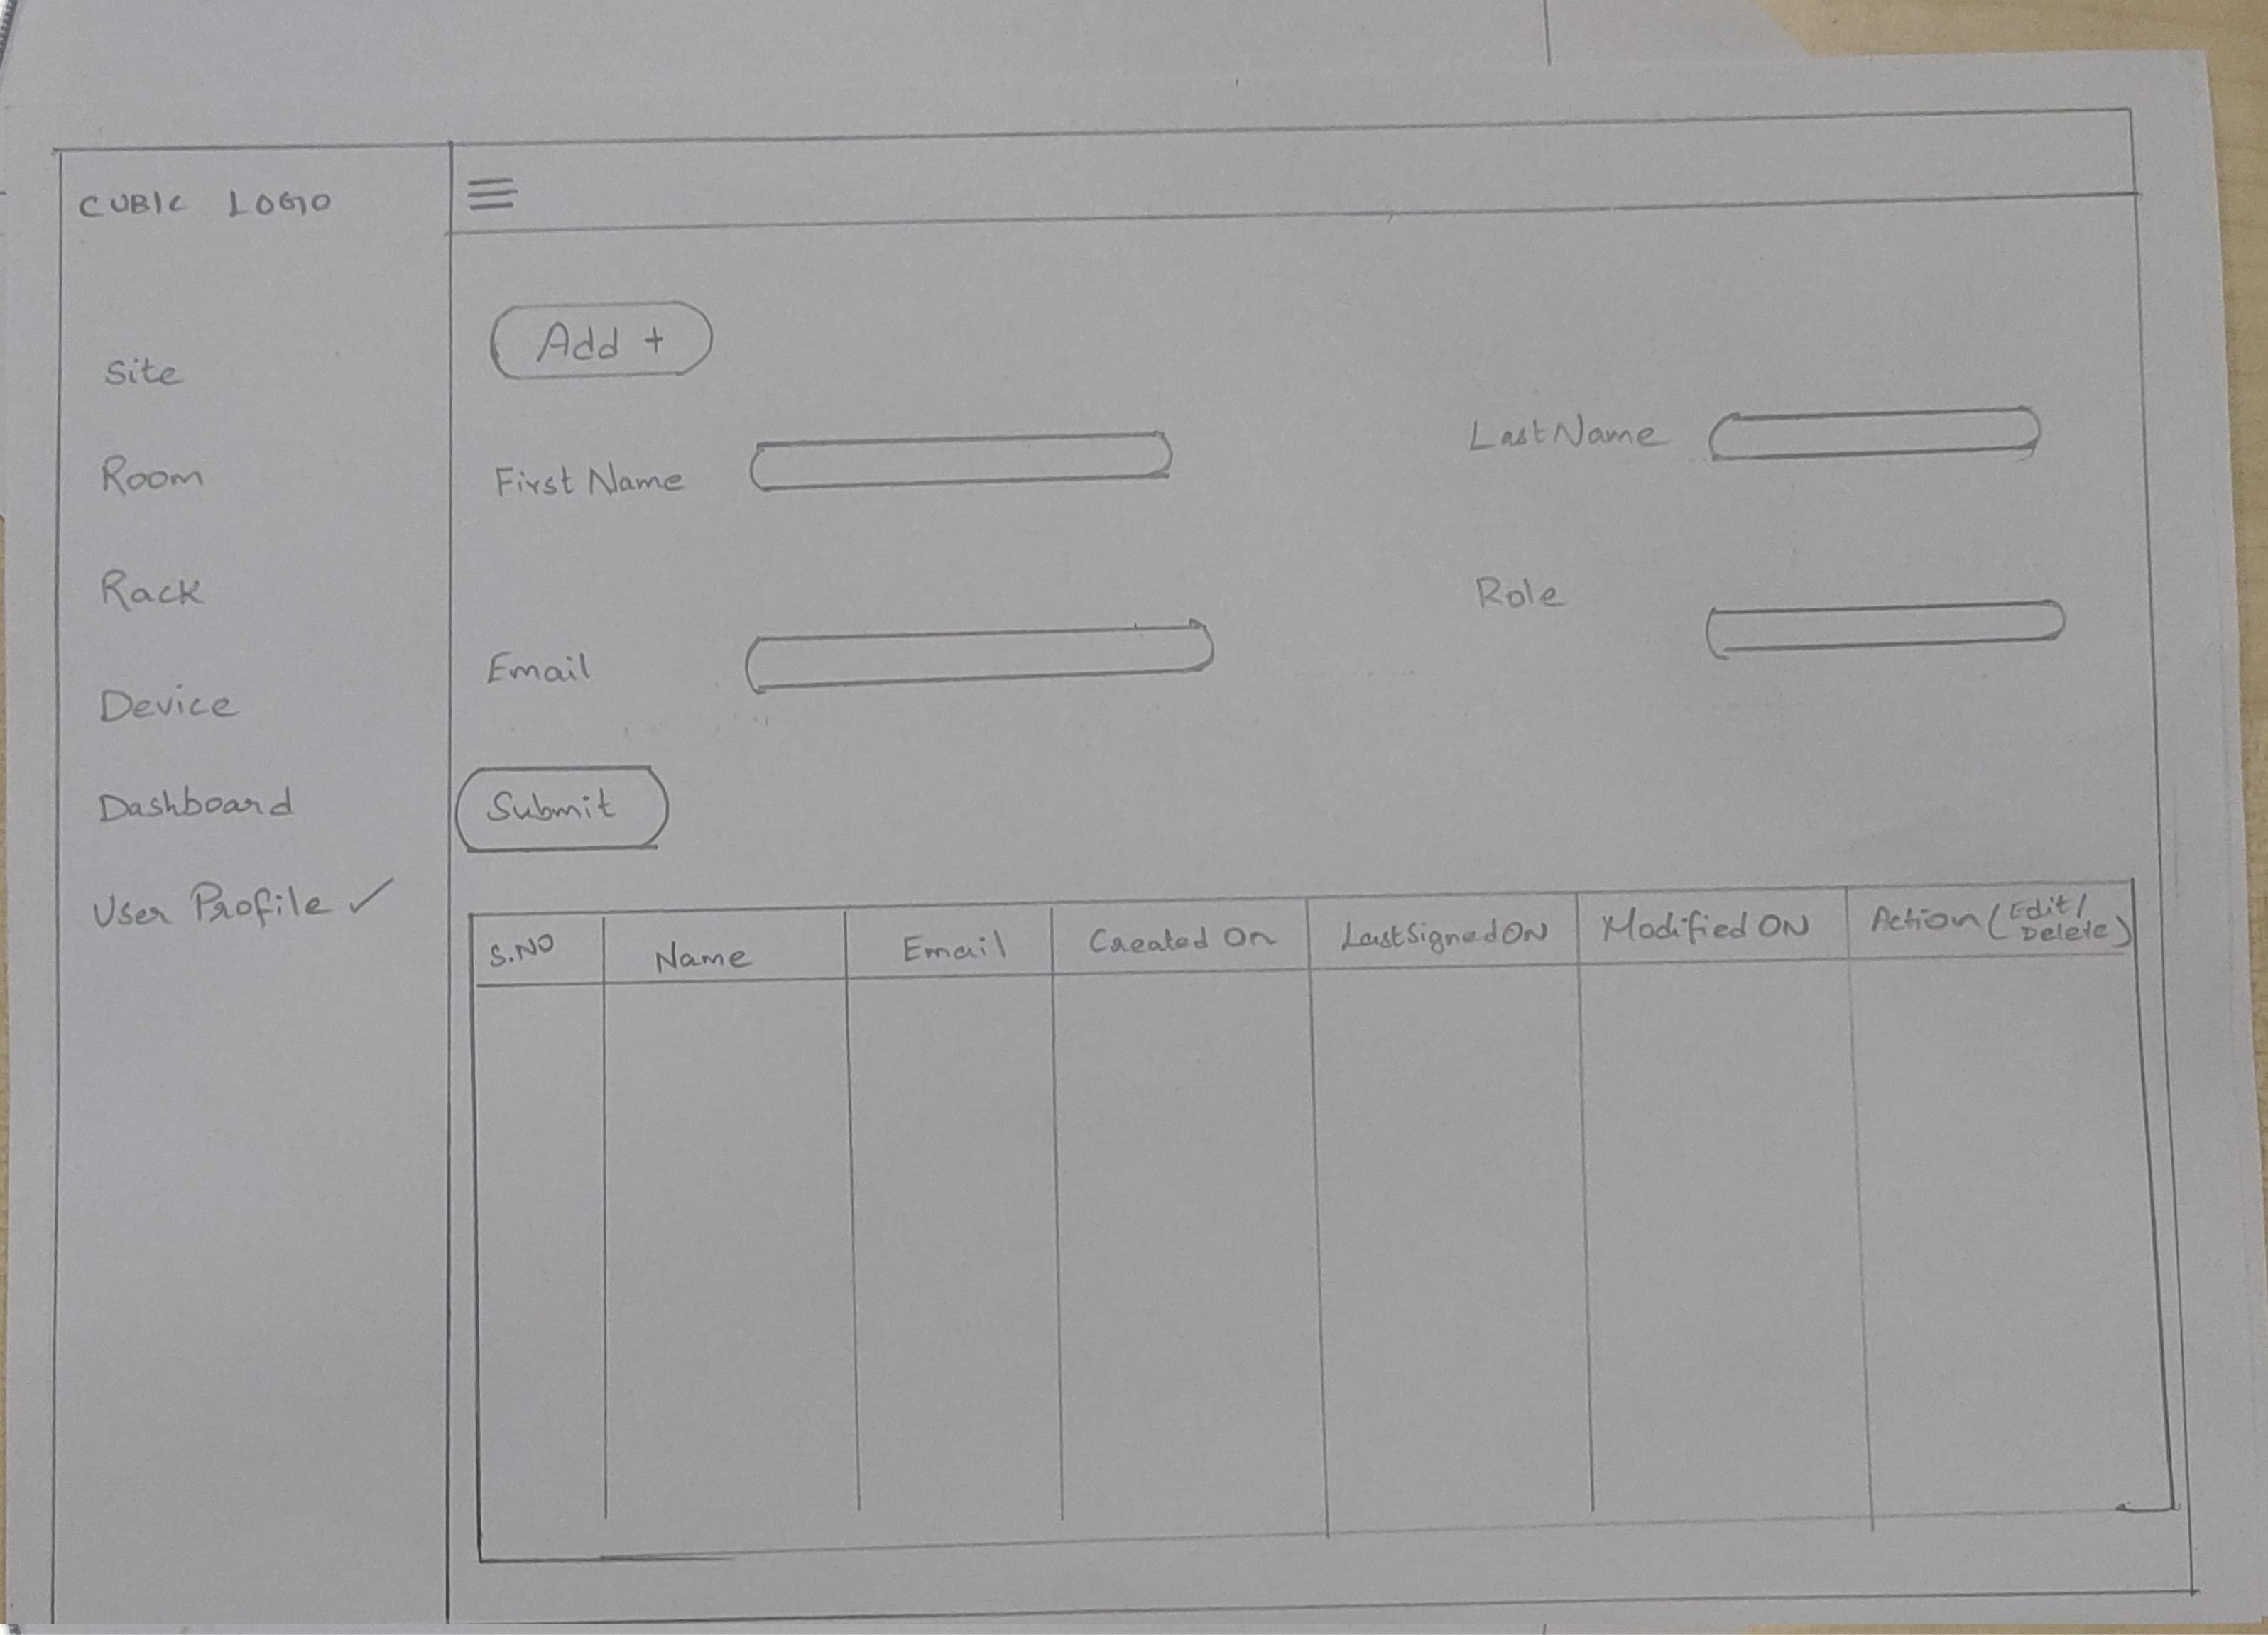 CUBIC LOGO
Site
Room
Rack
Device
Dashboard
User Profile ✓
Add +
First Name
Last Name
Email
Role
Submit
S.NO
Name
Email
Created On
Last Signed ON
Modified ON
Action (Edit/
Delete)